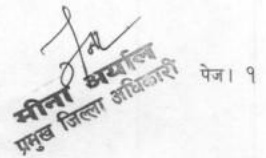 मीना अर्याल
प्रमुख जिल्ला अधिकारी
पेज। १